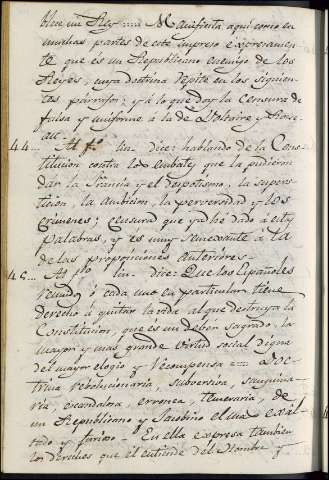 blece un Rey = Manifiesta aqui como en
muchas partes de este impreso expresamen
te que es un Republicano enemigo de los
Reyes, cuya doctrina repite en los siguien
tes parrafos; y á lo que doy la censura de
falsa y uniforme á la de Voltaire y Rous
eau.
44... Al fº lin. dice: hablando de la Cons
titucion contra los embates que la pudieran
dar la tirania y el despotismo, la supers
ticion, la ambicion, la perversidad y los
crimenes; censura que ya he dado á estas
palabras, y es muy semexante á la
de las proposiciones anteriores.
45... Al fº lin. dice: Que los Españoles
reunidos ó cada uno en particular tiene
derecho á quitar la vida al que destruya la
Constitucion, que es un deber sagrado, la
mayor y mas grande virtud social digna
del mayor elogio y recompensa = Doc
trina revolucionaria, subversiva, sanguina
ria, escandalosa, erronea, temeraria, de
un Republicano y Jacobino el mas exal
tado y furioso = En ella expresa tambien
los derechos que el entiende del Hombre y